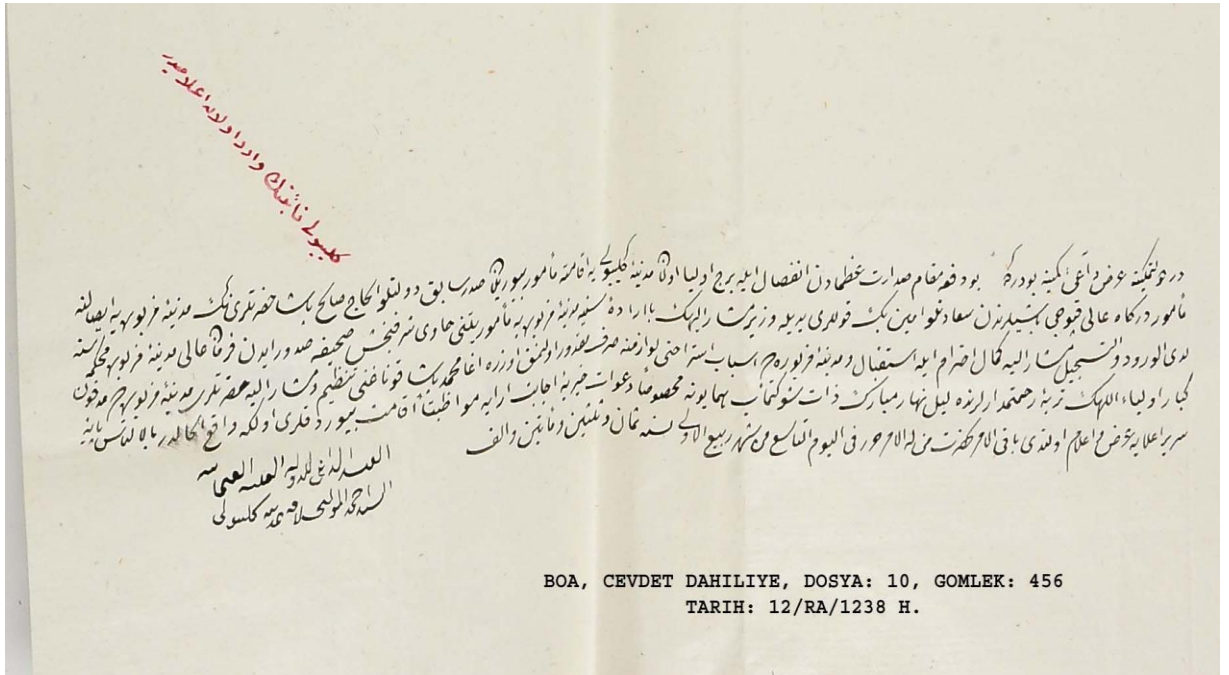 كليبولى نائبنك وارد اولان اعلاميدر
در دولتمكينه عرض داعئ كمينه بودر كه بو دفعه مقام صدارت عظمادن انفصال ايله برج اوليا اولان مدينۀ كليبولى يه اقامته مأمور بيوريلان صدر سابق دولتلو الحاج صالح پاشا حضرتلرى نك مدينۀ مزبوره يه ايصالنه
مأمور دركاه عالى قپوجى باشيلرندن سعادتلو امين بك قوللرى يديله وزير مشار اليهك بااراده سنيه مدينۀ مزبوره يه مأموريتنى حاوى شرفبخش صحيفه صدور ايدن فرمان عالى مدينۀ مزبوره محكمه سنه
لدى الورود والتسجيل مشار اليه كمال احترام ايله استقبال و مدينۀ مزبوره ده اسباب استراحتى لوازمنه صرف مقدور اولنمق اوزره اغا محمد پاشا قوناغنى تنظيم و مشار اليه حضرتلرى مدينۀ مزبوره ده مدفون
كبار اولياء اللهك تربۀ رحمتمدارلرنده ليل نهار مبارك ذات شوكتمآب همايونه مخصوصاً دعوات خيريۀ اجابت ارايه مواظبتاً اقامت بيوردقلرى اولكه واقع الحالدر بالالتماس پايۀ
سرير اعلايه عرض و اعلام اولندى باقى الامر لحضرت من له الامر حرر فى اليوم التاسع من شهر ربيع الاول لسنه ثمان وثلثين ومأتين والف
العبد الداعى للدولة العلية العثمانيه
السيد احمد المولى خلافه بمدينه كليبولى
BOA, CEVDET DAHILIYE, DOSYA: 10, GOMLEK: 456
TARIH: 12/RA/1238 H.